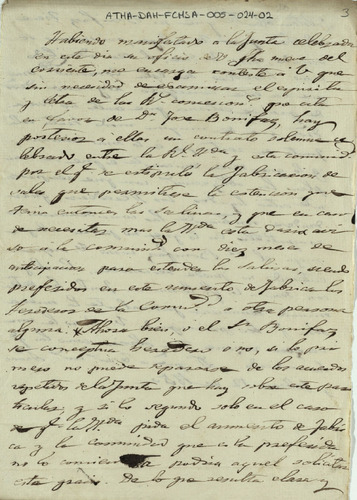 ATHA-DAH-FCHSA-005-024-02
3
Habiendo manifestado a la Junta celebrada
en este dia su oficio de D. mes del
corriente, me encarga conteste a V. que
sin necesidad de examinar el espiritu
y letra de las R.s concesiones que cita
en favor de Dn Jose Bonifaz, hay
posterior a ellas un contrato solemne ce
lebrado entre la Rl Hda y esta comunidd
por el qe se estipuló la fabricacion de
sales que permitiese la estension que
tenia entonces las Salinas, y que en caso
de necesitar mas la Hda esta daria avi
so a la comunidd con diez meses de
anticipacion para estender las Salinas, siendo
preferidos en este aumento de fabrica los
herederos de la Comund a otra persona
alguna. Ahora bien, o el Sr Bonifaz
se conceptua heredero o no, si lo pri
mero no puede separarse de los acuerdos
respetos de la Junta que hay sobre este par
ticular, y si lo segundo solo en el caso
de qe la Hda pida el aumento de fabri
ca y la comunidad que es la preferida
no lo podria aquel solicitar
esta gracia. De lo qe resulta clara y